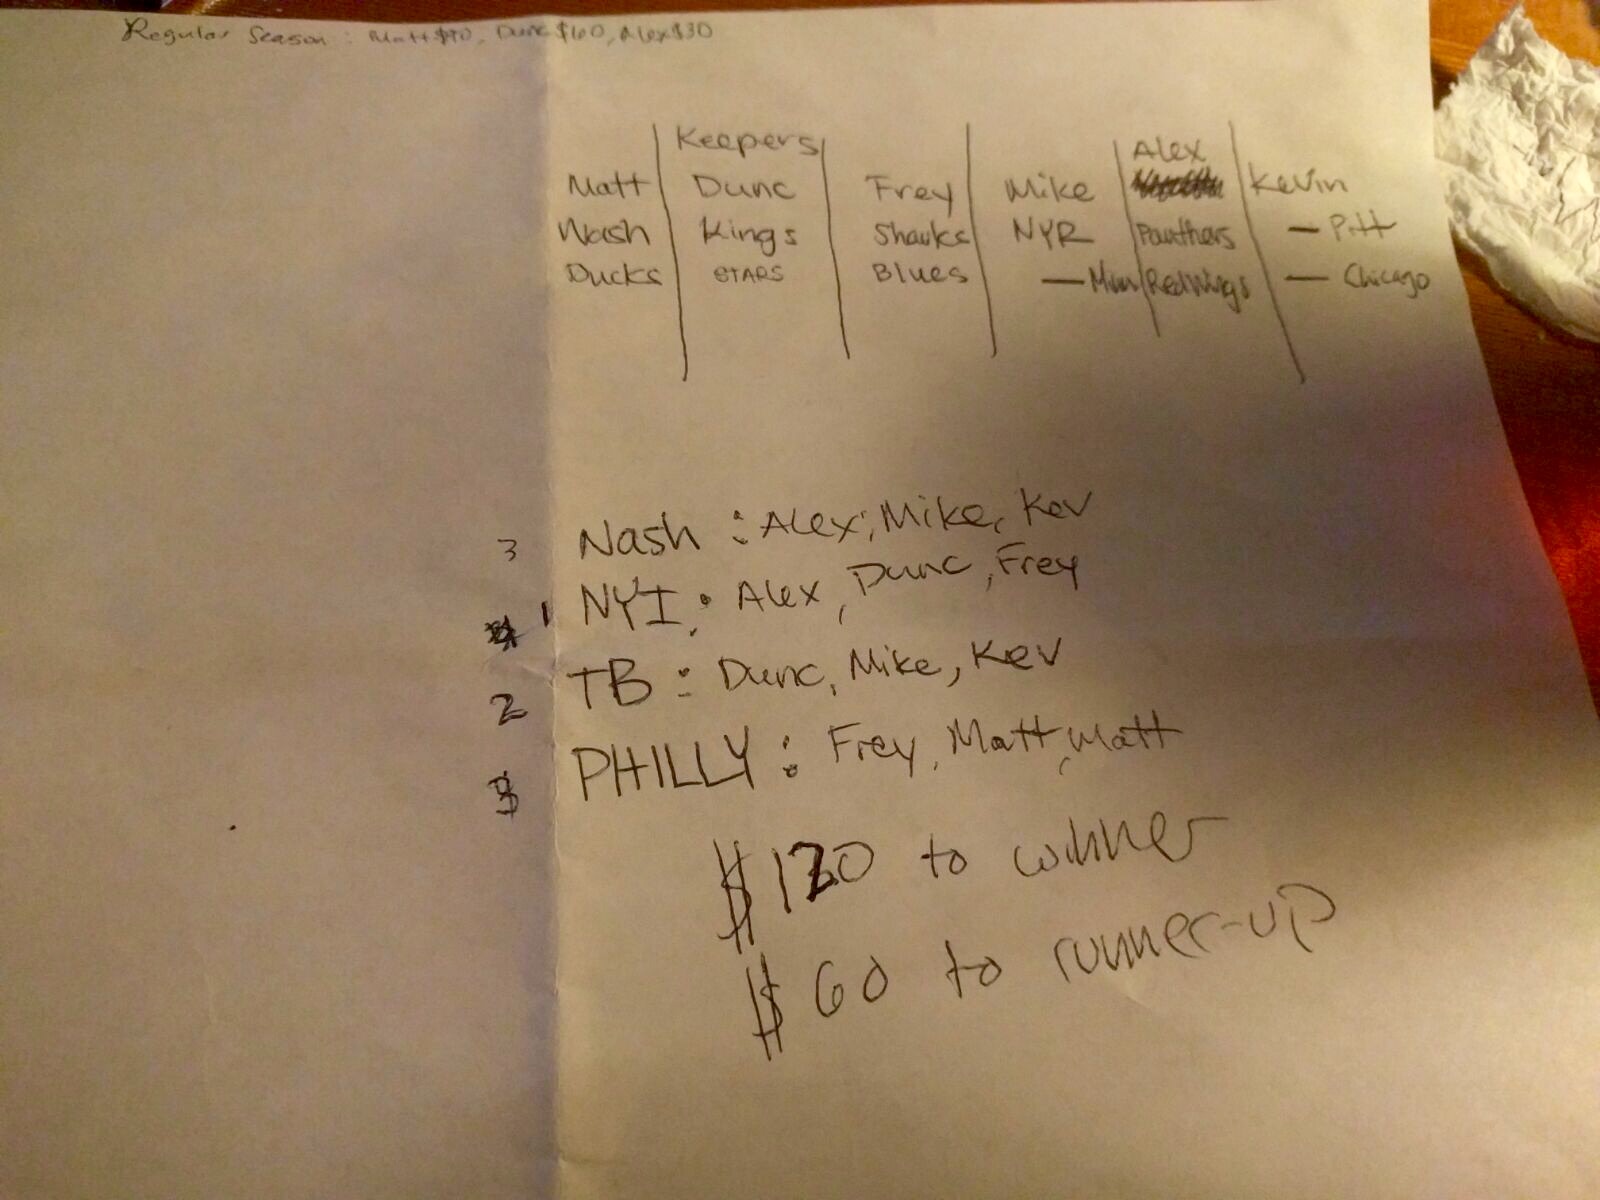 Regular Season: Matt $90, Dunc $60, Alex $30
Keepers Alex
Matt Dunc Frey Mike Kevin
Nash Kings Sharks NYR Panthers — Pitt
Ducks STARS Blues — Minn RedWings — Chicago
3 Nash : Alex, Mike, Kev
1 NYI : Alex, Dunc, Frey
2 TB : Dunc, Mike, Kev
PHILLY : Frey, Matt, Matt
$120 to winner
$60 to runner-up